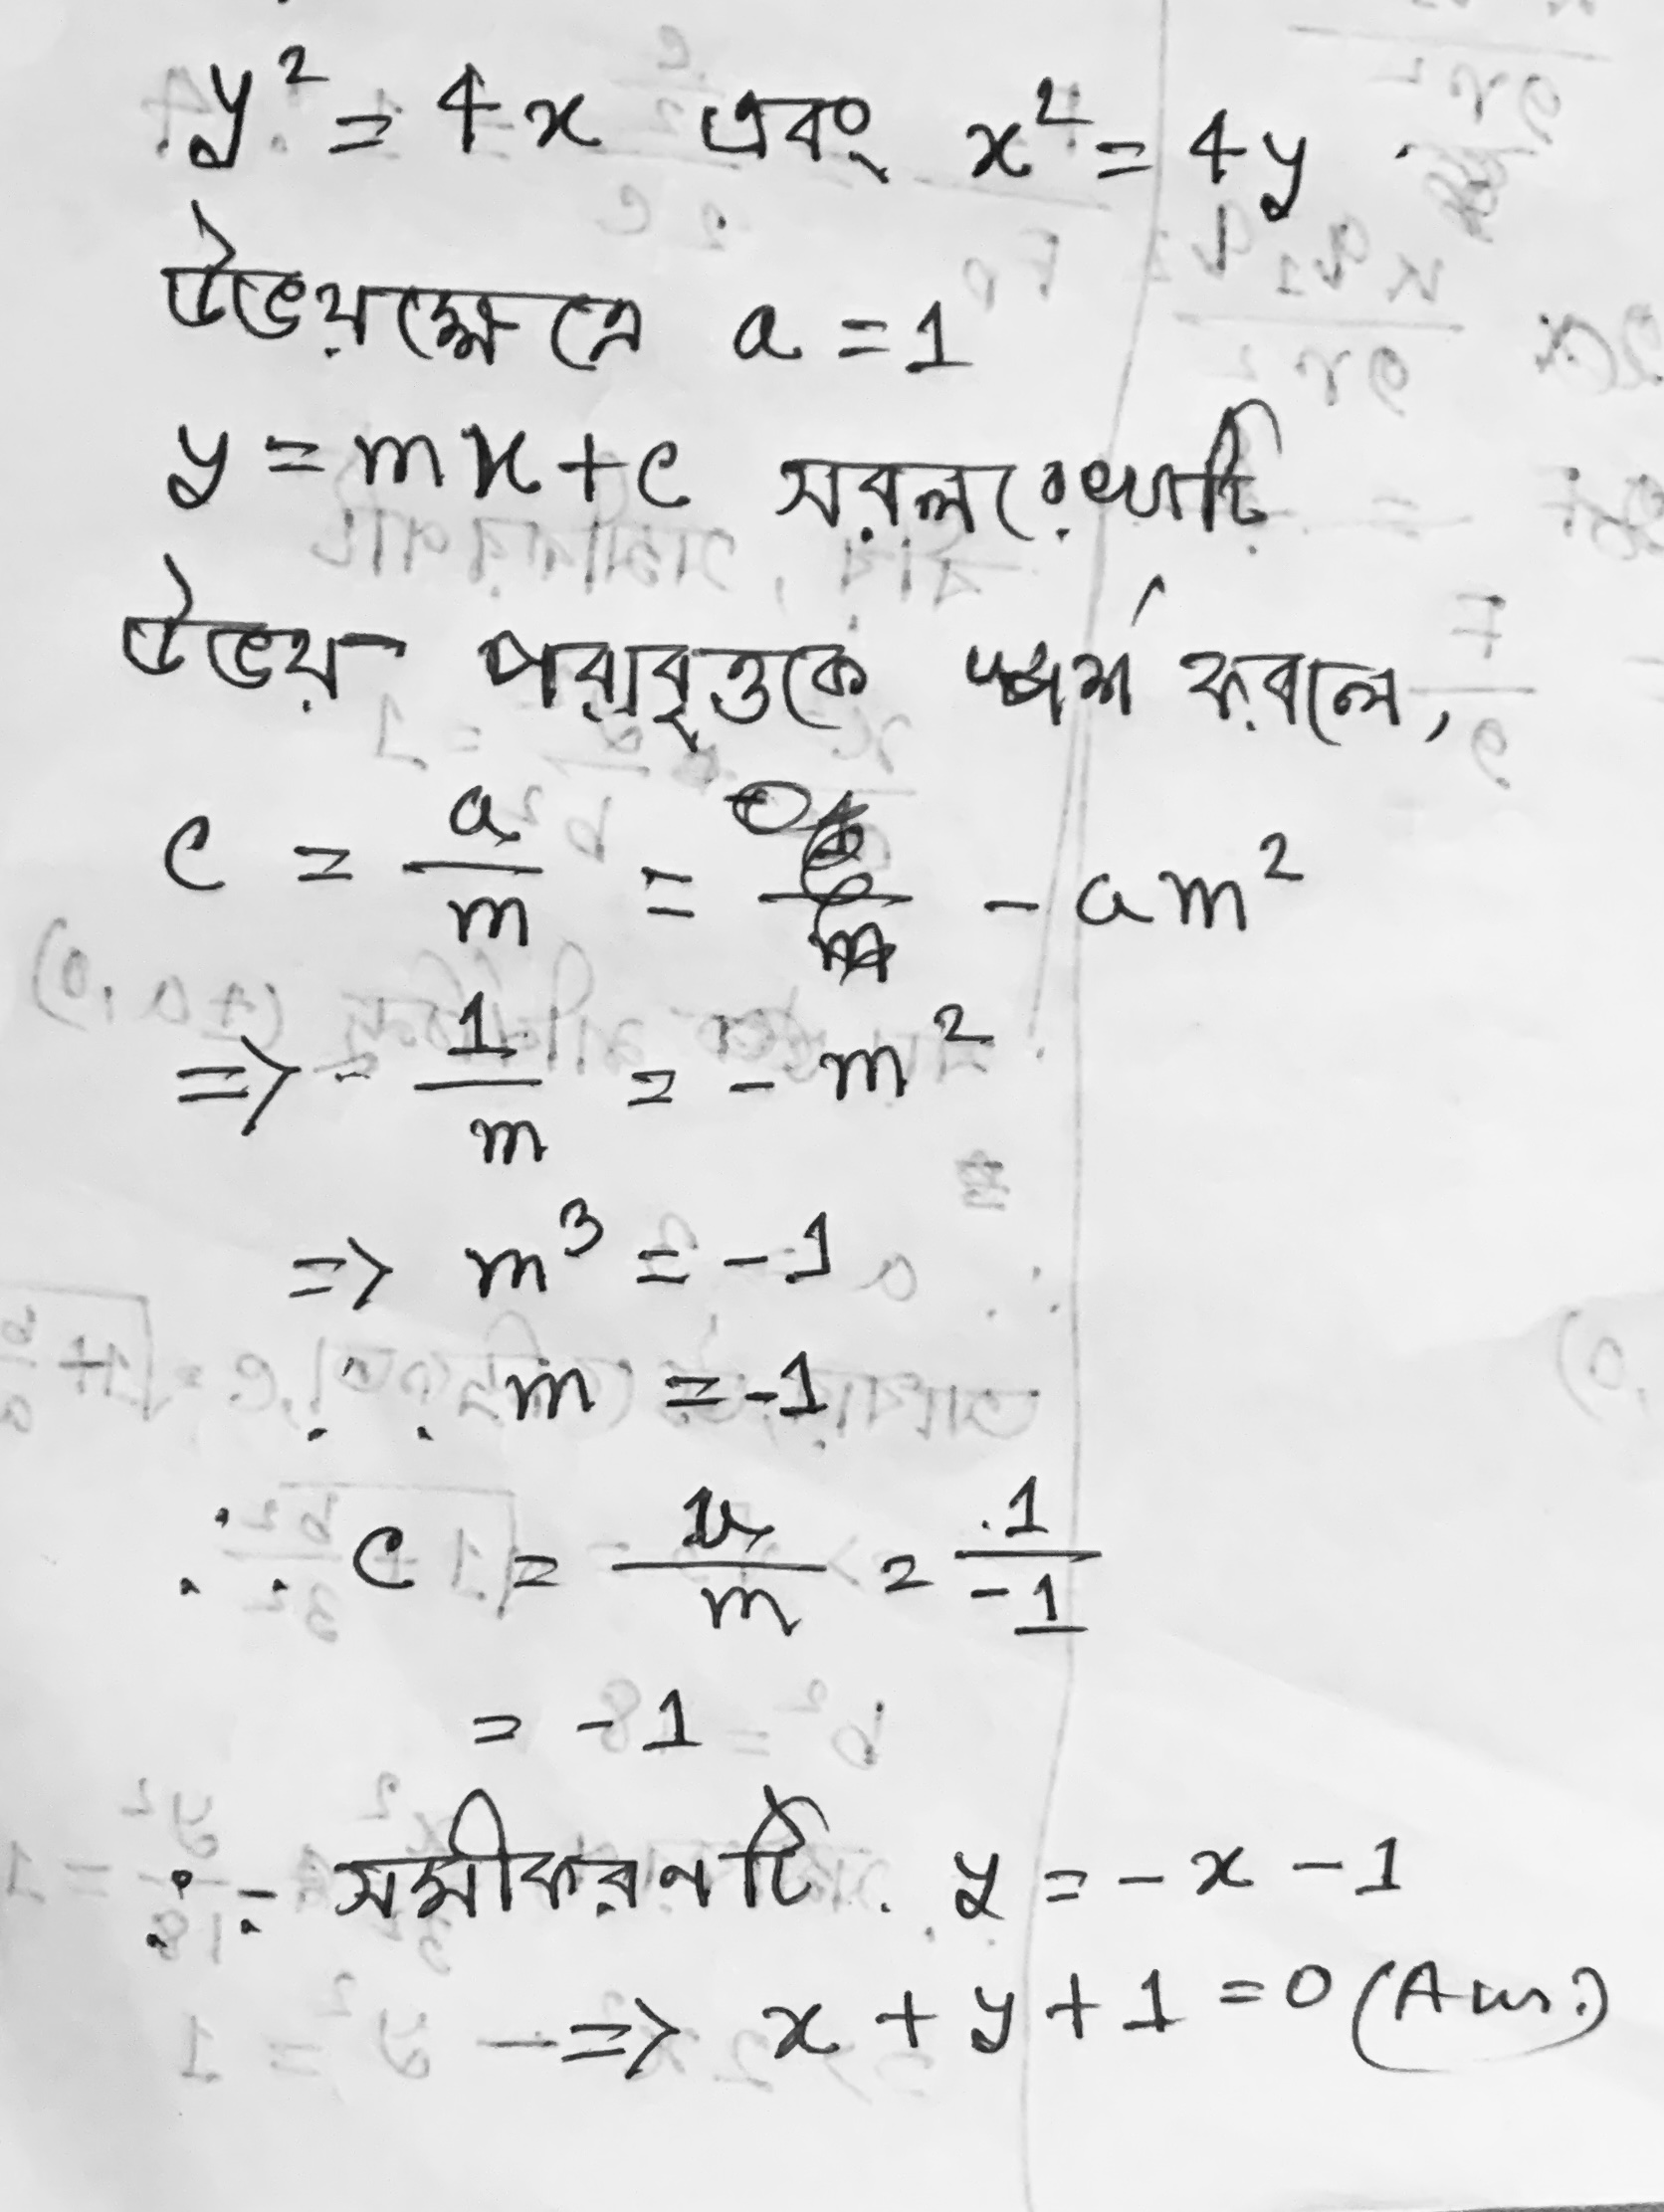 y² = 4x এবং x² = 4y
উভয়ক্ষেত্রে a = 1
y = mx + c সরলরেখাটি
উভয় পরাবৃত্তকে স্পর্শ করলে,
c = a/m = - am²
=> 1/m = - m²
=> m³ = -1
∴ m = -1
∴ c = 1/m = 1/-1
= -1
∴ সমীকরনটি y = - x - 1
=> x + y + 1 = 0 (Ans:)